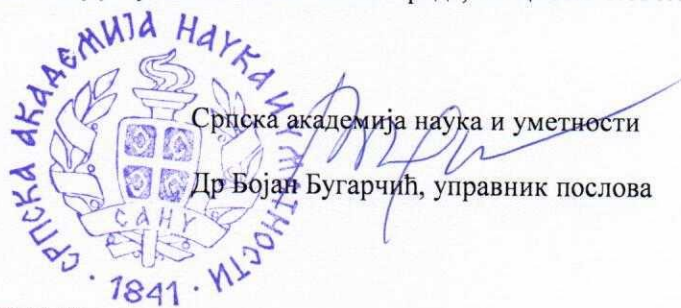 СРПСКА АКАДЕМИЈА НАУКА И УМЕТНОСТИ · 1841 ·
САНУ
Српска академија наука и уметности
Др Бојан Бугарчић, управник послова